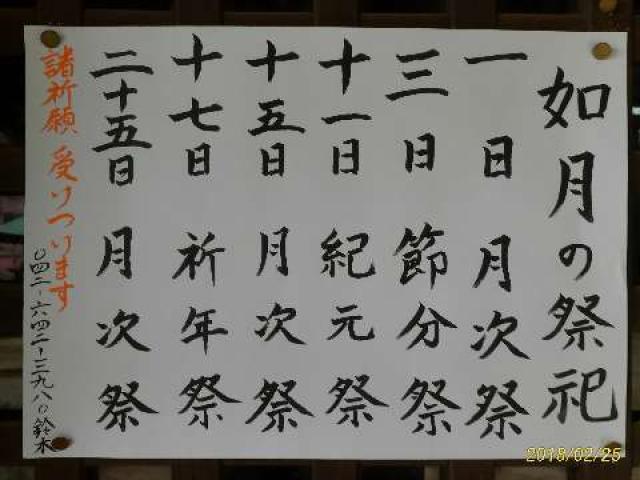 如月の祭祀
一日 月次祭
三日 節分祭
十一日 紀元祭
十五日 月次祭
十七日 祈年祭
二十五日 月次祭
諸祈願 受けつけます
〇四二-六四二-三九八〇 鈴木
2018/02/25